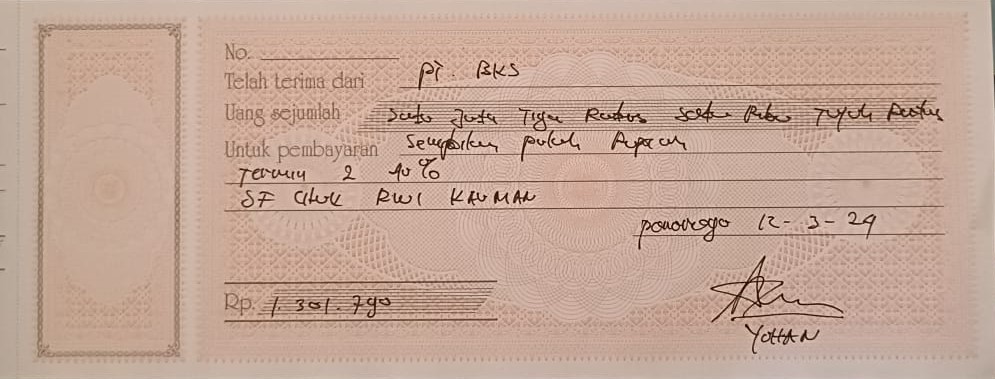 No.
Telah terima dari PT. BKS
Uang sejumlah Satu Juta Tiga Ratus Satu Ribu Tujuh Ratus
Untuk pembayaran Sembilan puluh Rupiah
Termin 2 40%
SF RWI KAUMAN
ponorogo 12-3-24
Rp. 1.301.790
YOHAN